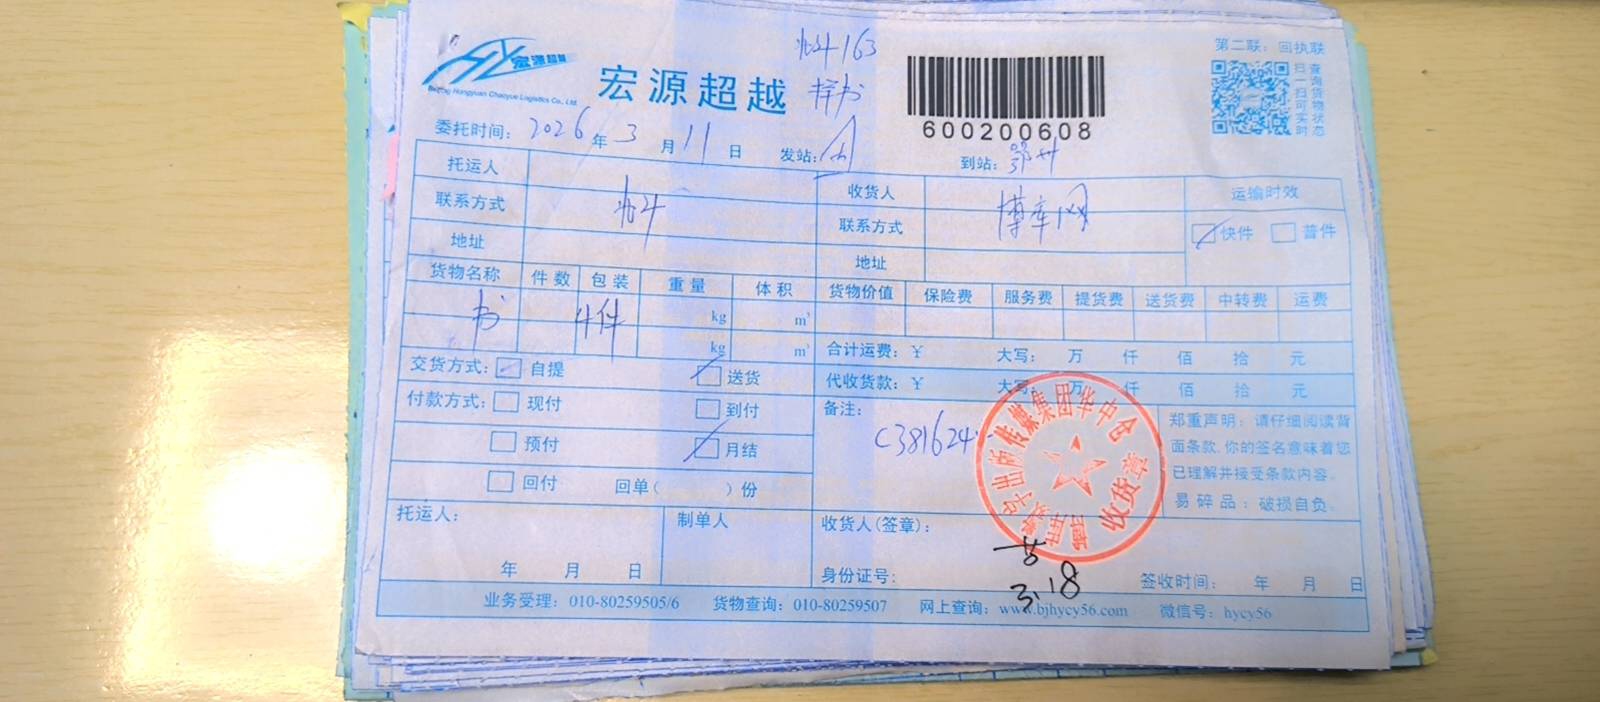 第二联：回执联
宏源超越
Beijing Hongyuan Chaoyue Logistics Co., Ltd.
宏源超越
163
样书
600200608
扫一扫可查询货物实时状态
委托时间： 2026 年 3 月 11 日 发站： 到站： 鄂州
托运人 收货人 博库网 运输时效
联系方式 联系方式 快件 普件
地址 地址
货物名称 件数 包装 重量 体积 货物价值 保险费 服务费 提货费 送货费 中转费 运费
书 4件 kg m³
kg m³ 合计运费：￥ 大写： 万 仟 佰 拾 元
交货方式： 自提 送货 代收货款：￥ 大写： 万 仟 佰 拾 元
付款方式： 现付 到付 备注：
预付 月结 C381624
回付 回单（ ）份
郑重声明：请仔细阅读背
面条款，你的签名意味着您
已理解并接受条款内容。
易碎品：破损自负。
数字出版传媒集团华中仓
收货章
托运人： 制单人 收货人(签章)：
年 月 日 身份证号： 3.18 签收时间： 年 月 日
业务受理：010-80259505/6 货物查询：010-80259507 网上查询：www.bjhycy56.com 微信号：hycy56